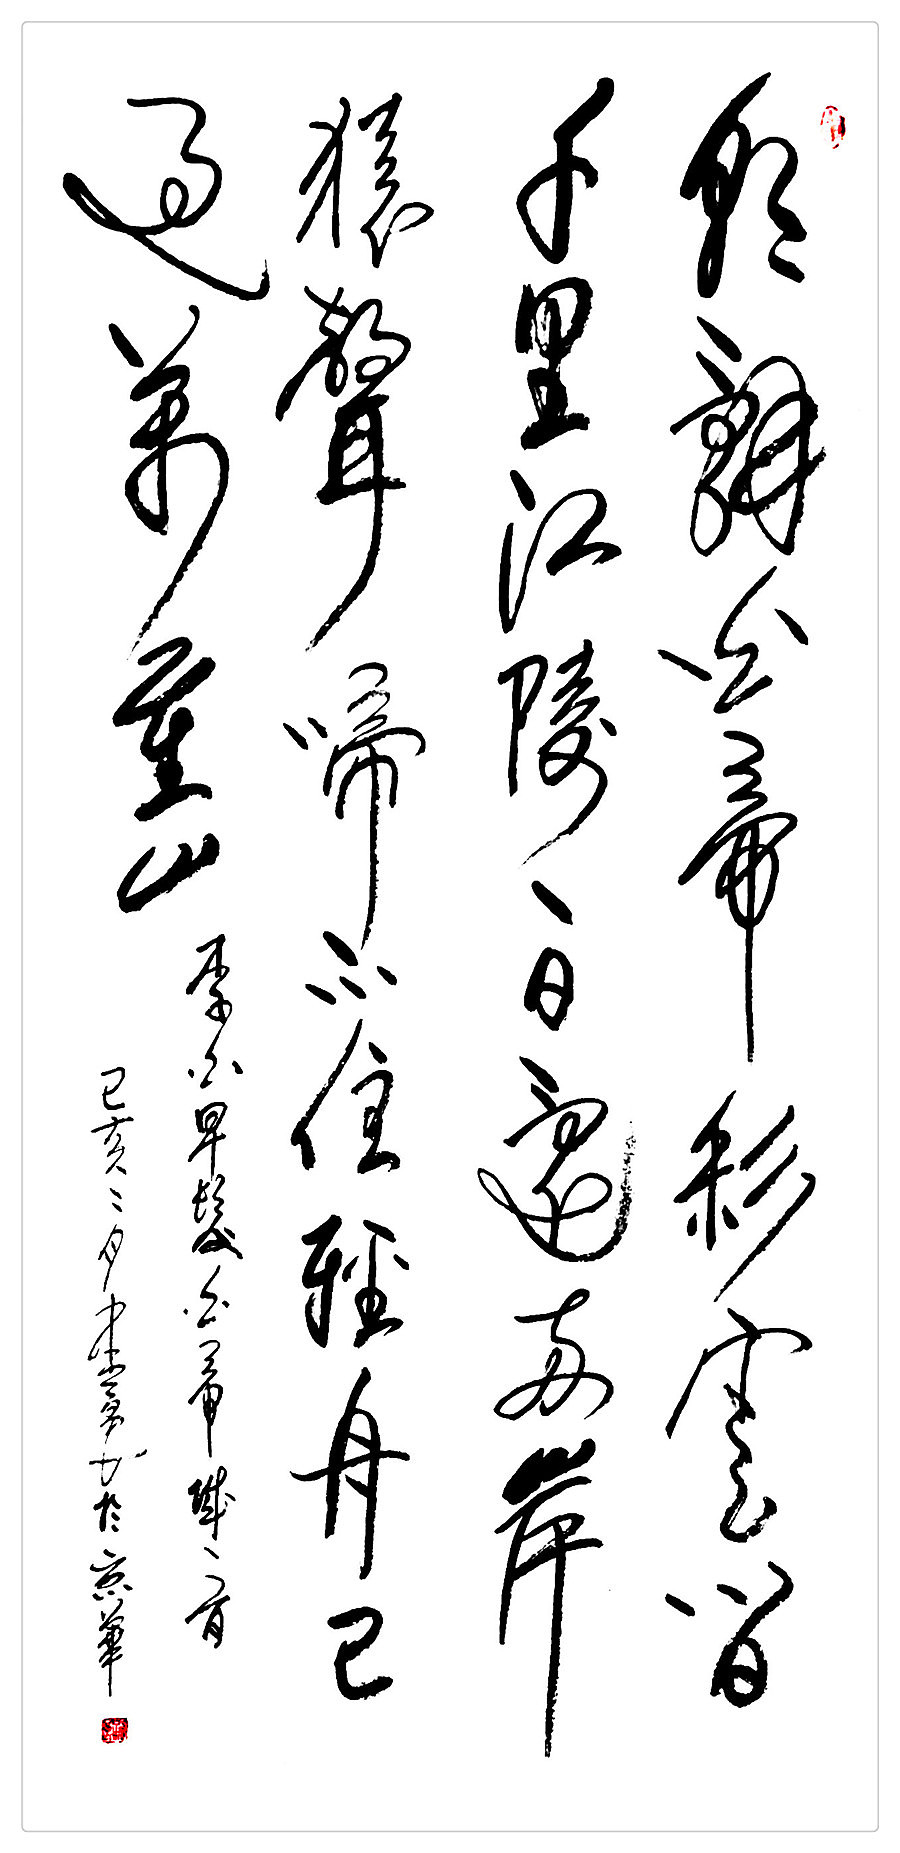 朝辭白帝彩雲間
千里江陵一日還兩岸
猿聲啼不住輕舟已
過萬重山
李白早發白帝城一首
己亥二月書於京華